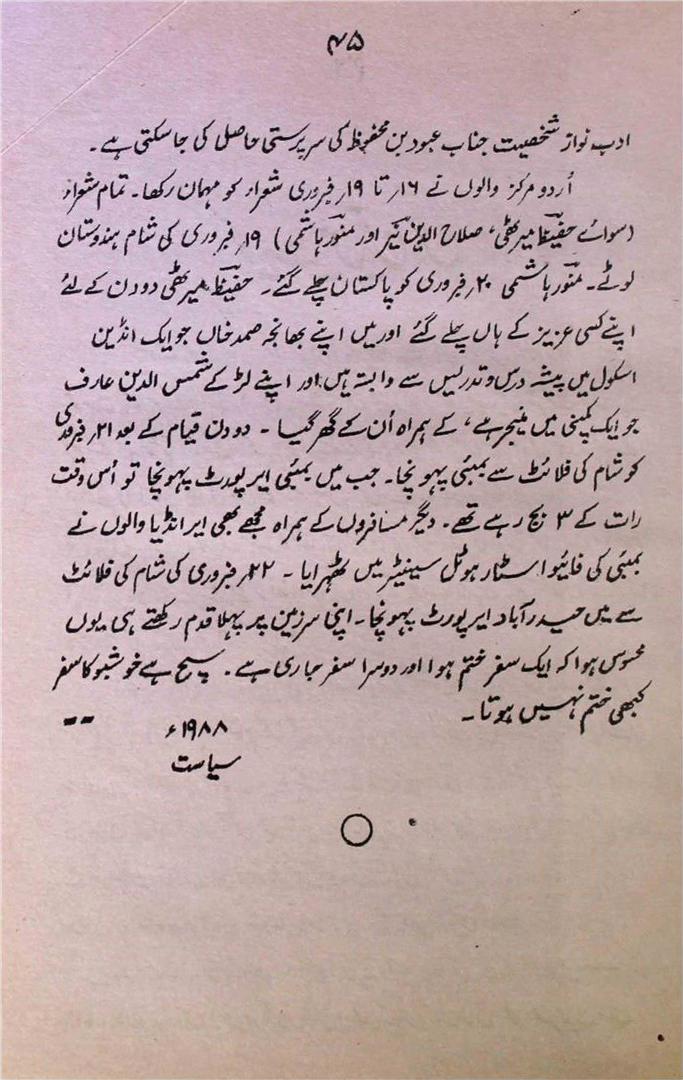 ۴۵
ادب نواز شخصیت جناب عبود بن محفوظ کی سرپرستی حاصل کی جاسکتی ہے۔
اُردو مرکز والوں نے ۱۶؍ تا ۱۹؍ فروری شعراء کو مہمان رکھا۔ تمام شعراء
(سوائے حفیظؔ میرٹھی، صلاح الدین نیّر اور منوّر ہاشمی) ۱۹؍ فروری کی شام ہندوستان
لوٹے۔ منوّر ہاشمی ۲۰؍ فروری کو پاکستان چلے گئے۔ حفیظؔ میرٹھی دو دن کے لئے
اپنے کسی عزیز کے ہاں چلے گئے اور میں اپنے بھانجہ صمد خاں جو ایک انڈین
اسکول میں پیشہ درس و تدریس سے وابستہ ہیں، اور اپنے لڑکے شمس الدین عارف
جو ایک کمپنی میں منیجر ہے، کے ہمراہ اُن کے گھر گیا ۔ دو دن قیام کے بعد ۲۱؍ فروری
کو شام کی فلائٹ سے بمبئی پہونچا۔ جب میں بمبئی ایر پورٹ پہونچا تو اُس وقت
رات کے ۳ بج رہے تھے۔ دیگر مسافروں کے ہمراہ مجھے بھی ایر انڈیا والوں نے
بمبئی کی فائیو اسٹار ہوٹل سینیٹر میں ٹھہرایا ۔ ۲۲؍ فروری کی شام کی فلائٹ
سے میں حیدرآباد ایرپورٹ پہونچا۔ اپنی سرزمین پر پہلا قدم رکھتے ہی یوں
محسوس ہوا کہ ایک سفر ختم ہوا اور دوسرا سفر جاری ہے۔ سچ ہے خوشبو کا سفر
کبھی ختم نہیں ہوتا۔
۱۹۸۸ء --
سیاست